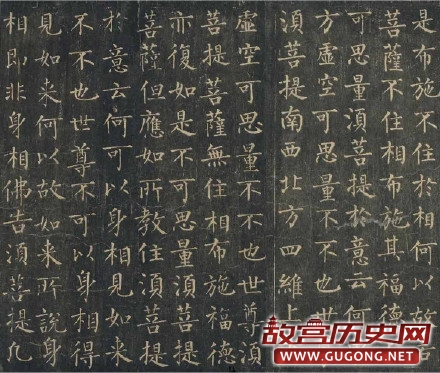 是布施不住於相何以故若
菩薩不住相布施其福德
可思量湏菩提於意云何
方虛空可思量不不也世
湏菩提南西北方四維上
虛空可思量不不也世尊湏
菩提菩薩無住相布施福德
亦復如是不可思量湏菩提
菩薩但應如所教住湏菩提
於意云何可以身相見如来
不不也世尊不可以身相得
見如来何以故如来所說身
相即非身相佛告湏菩提凡
故宫历史网
www.GUGONG.NET